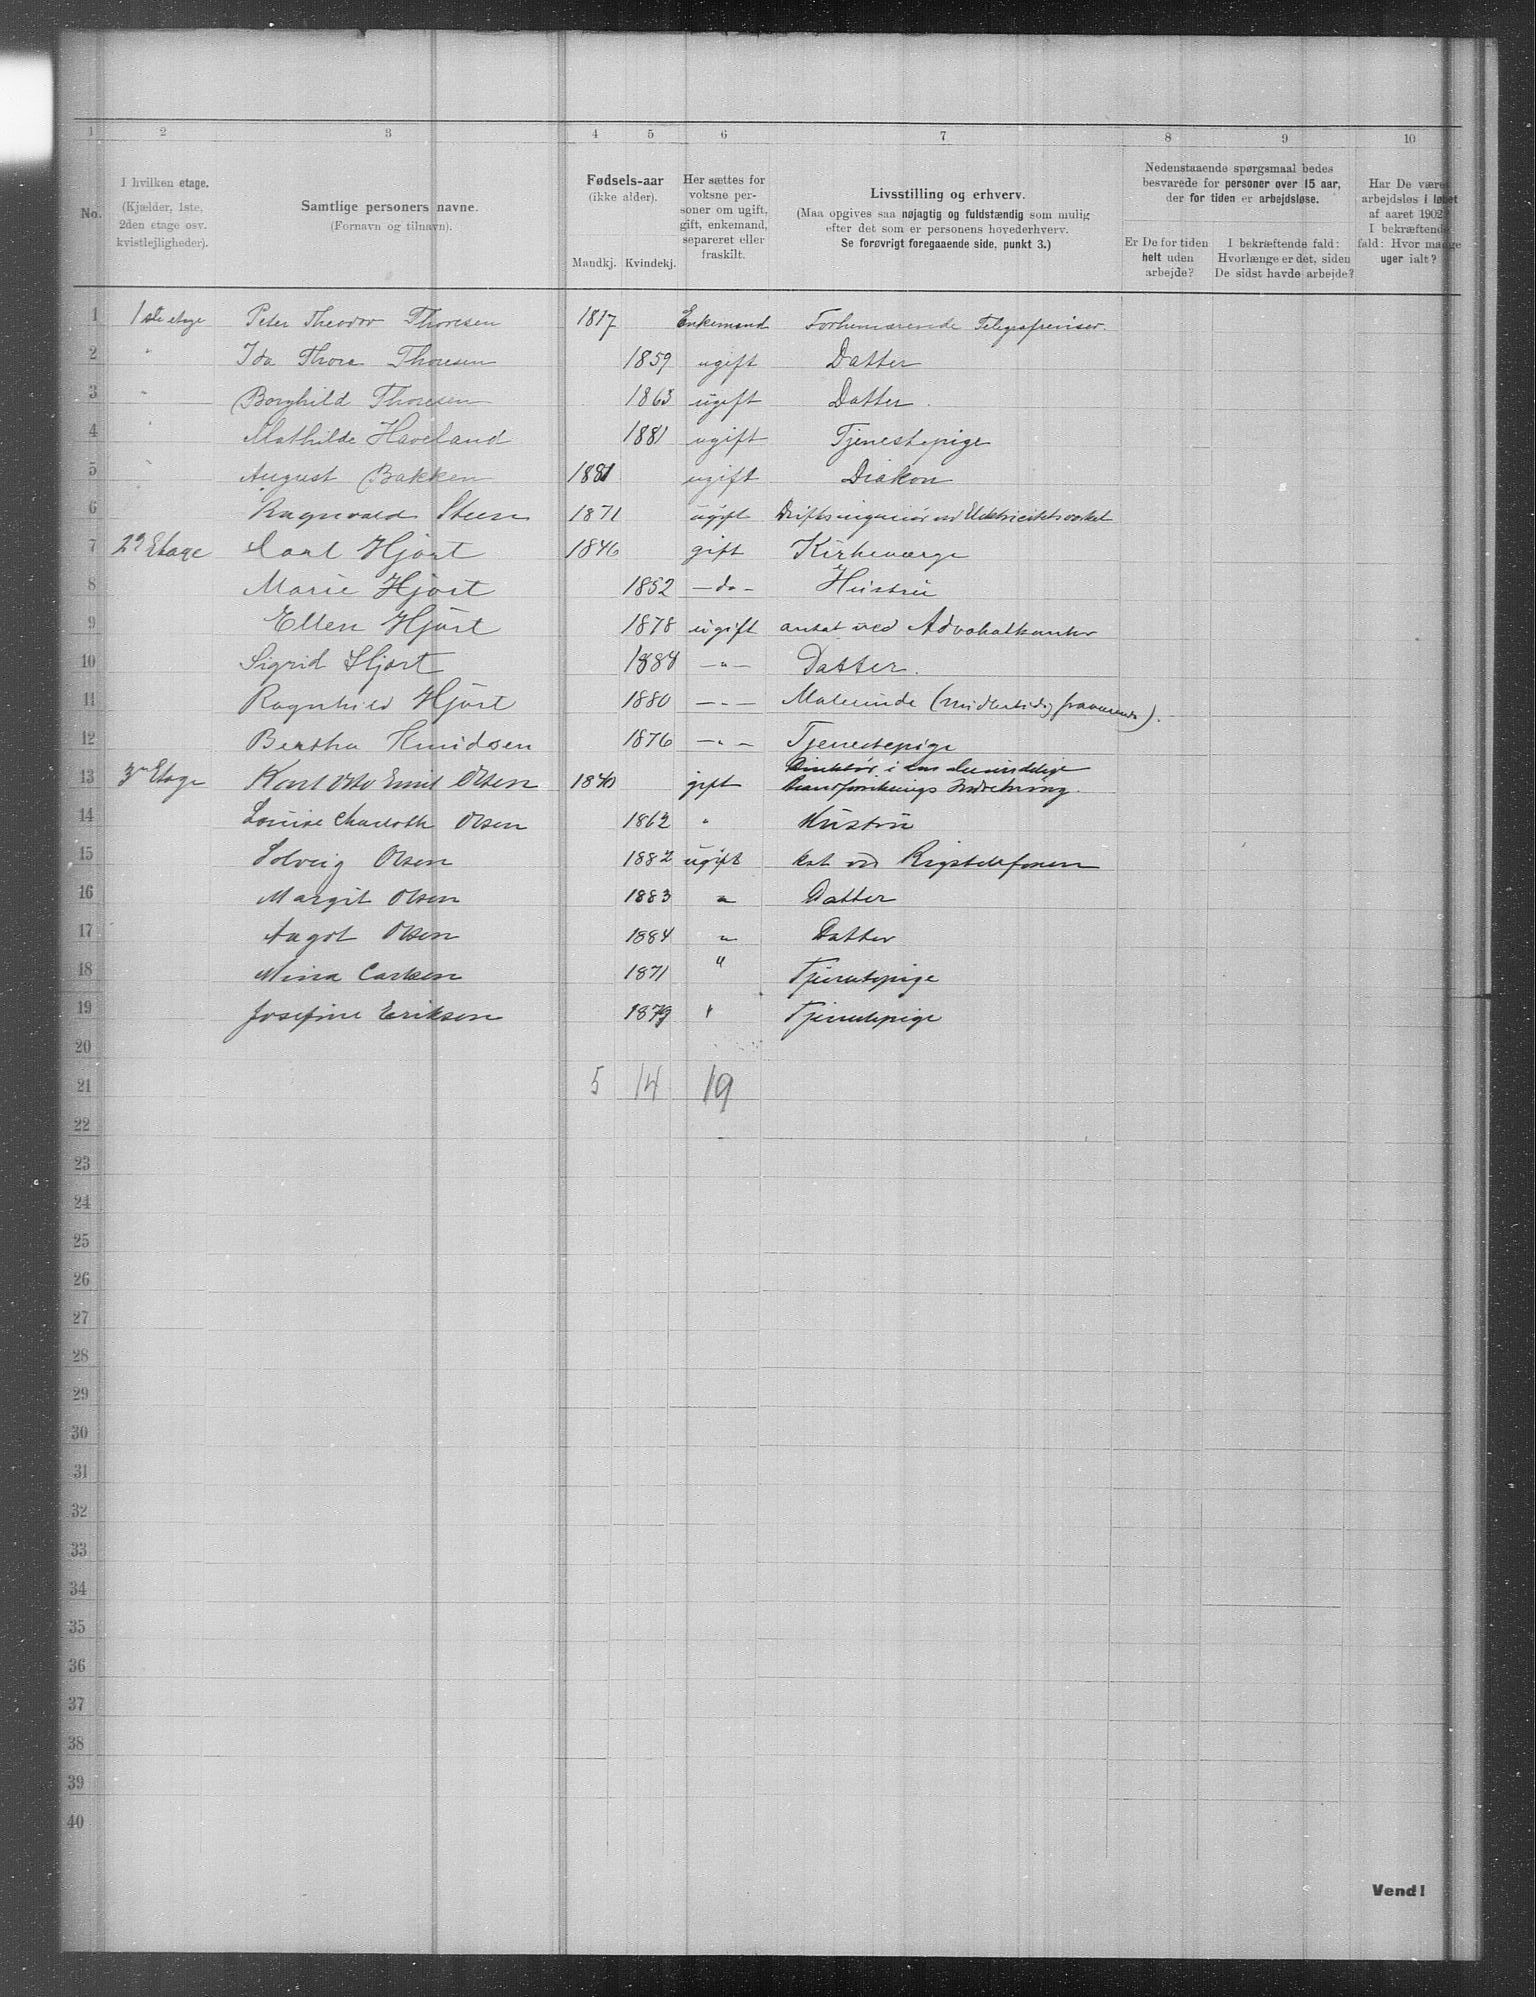 1 2 3 4 5 6 7 8 9 10
No.
I hvilken etage.
(Kjælder, 1ste,
2den etage osv.
kvistlejligheder).
Samtlige personers navne.
(Fornavn og tilnavn).
Fødsels-aar
(ikke alder).
Mandkj. Kvindekj.
Her sættes for
voksne per-
soner om ugift,
gift, enkemand,
separeret eller
fraskilt.
Livsstilling og erhverv.
(Maa opgives saa nøjagtig og fuldstændig som mulig
efter det som er personens hovederhverv.
Se forøvrigt foregaaende side, punkt 3.)
Nedenstaaende spørgsmaal bedes
besvarede for personer over 15 aar,
der for tiden er arbejdsløse.
Er De for tiden
helt uden
arbejde?
I bekræftende fald:
Hvorlænge er det, siden
De sidst havde arbejde?
Har De være
arbejdsløs i løbet
af aaret 1902?
I bekræftende
fald: Hvor mange
uger ialt?
1 1ste etage Peter Theodor Thoresen 1817 Enkemand Forhenværende Telegrafrevisor.
2 " Ida Thora Thoresen 1859 ugift Datter
3 " Borghild Thoresen 1863 ugift Datter.
4 " Mathilde Haveland 1881 ugift Tjenestepige
5 " August Bakken 1881 ugift Diakon
6 Ragnvald Steen 1871 ugift Driftsingeniør ved Elektricitetsverket
7 2n Etage Carl Hjort 1846 gift Kirkeværge
8 Marie Hjort 1852 — do — Hustru
9 Ellen Hjort 1878 ugift ansat ved Advokatkontor
10 Sigrid Hjort 1884 — " — Datter.
11 Ragnhild Hjort 1880 — " — Malerinde (midlertidig fraværende).
12 Bertha Knudsen 1876 — " — Tjenestepige
13 3n Etage Karl Otto Emil Olsen 1840 gift Direktør i den
Brandforsikrings Indretning.
14 Louise Charloth Olsen 1862 " Hustru
15 Solveig Olsen 1882 ugift ved Rigstelefonen
16 Margit Olsen 1883 " Datter
17 Aagot Olsen 1884 " Datter
18 Mina Carlsen 1871 " Tjenestepige
19 Josefine Eriksen 1879 " Tjenestepige
20
21 5 14 19
22
23
24
25
26
27
28
29
30
31
32
33
34
35
36
37
38
39
40
Vend!